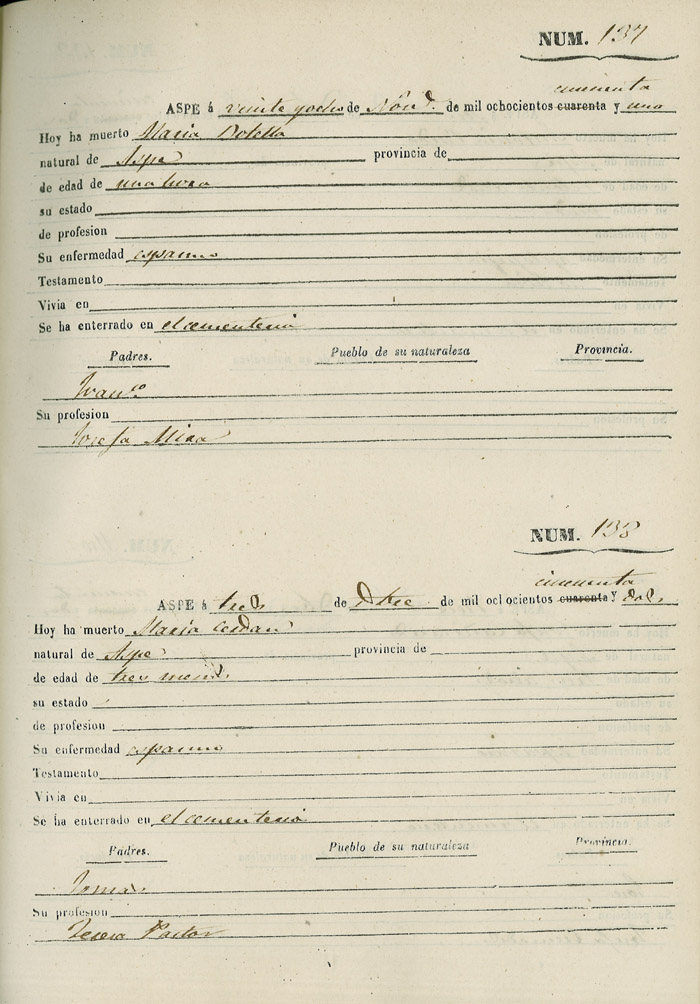 NUM. 137
cincuenta
ASPE á veinte y ocho de Nov.e de mil ochocientos cuarenta y uno
Hoy ha muerto Maria Botella
natural de Aspe provincia de
de edad de una hora
su estado
de profesion
Su enfermedad espasmo
Testamento
Vivia en
Se ha enterrado en el cementerio
Padres. Pueblo de su naturaleza Provincia.
Fran.co
Su profesion
Josefa Mira
NUM. 138
cincuenta
ASPE á tres de Dbre de mil ochocientos cuarenta y dos
Hoy ha muerto Maria Cerdan
natural de Aspe provincia de
de edad de tres meses
su estado
de profesion
Su enfermedad espasmo
Testamento
Vivia en
Se ha enterrado en el cementerio
Padres. Pueblo de su naturaleza Provincia.
Tomas
Su profesion
Teresa Pastor